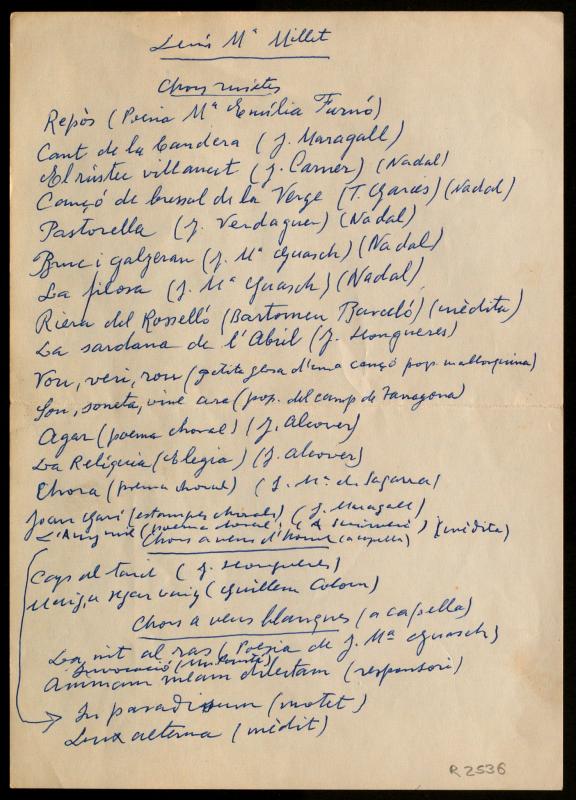 Lluís Mª Millet
Chors mixtes
Repòs (Poesia Mª Emília Furnó)
Cant de la bandera (J. Maragall)
El rústec villancet (J. Carner) (Nadal)
Cançó de bressol de la Verge (T. Garcés) (Nadal)
Pastorella (J. Verdaguer) (Nadal)
Bruc i galzeran (J. Mª Guasch) (Nadal)
La filosa (J. Mª Guasch) (Nadal)
Riera del Rosselló (Bartomeu Barceló) (inèdita)
La sardana de l'Abril (J. Llongueres)
Vou, veri, vou (petita glosa d'una cançó pop. mallorquina)
Son, soneta, vine ara (pop. del camp de Tarragona)
Agar (poema choral) (J. Alcover)
La Relíquia (Elegia) (J. Alcover)
(poema choral) (J. Mª de Sagarra)
Joan Garí (estampes chorals) (J. Maragall)
(poema choral) (inèdita)
Chors a veus d'home (a capella)
Cap al tard (J. Llongueres)
(Guillem Colom)
Chors a veus blanques (a capella)
La nit al ras (Poesia de J. Mª Guasch)
Invocació
Animam meam dilectam (responsori)
In paradisum (motet)
Lux aeterna (inèdit)
R. 2536